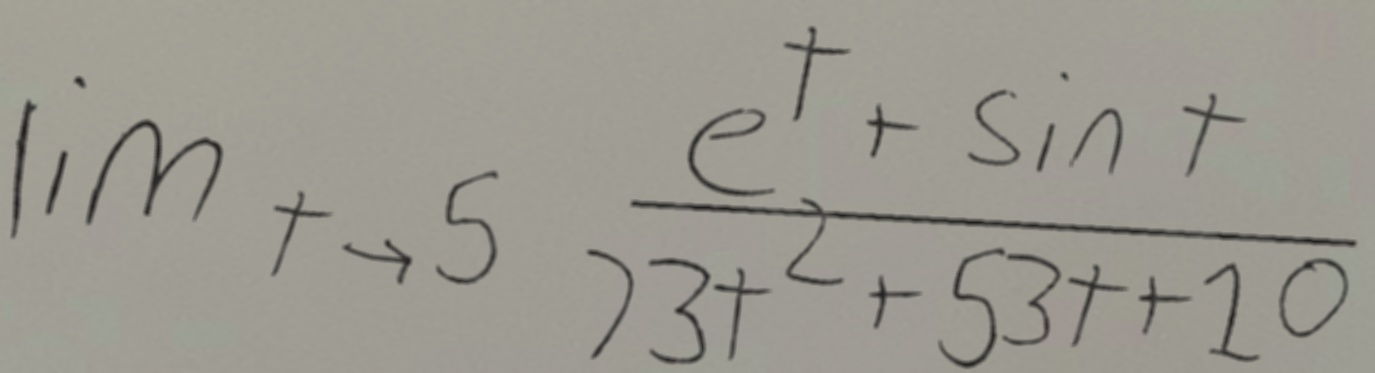 lim t→5 (e^t + sin t)/(73t² + 53t + 10)